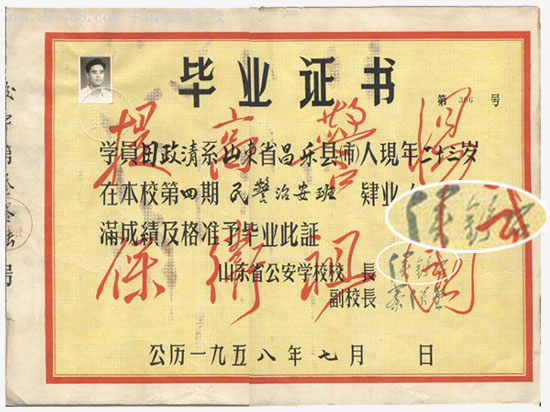 毕业证书
第 396 号
学員田政清系山東省昌乐县(市)人現年二十三岁
在本校第四期民警治安班肄业
滿成績及格准予毕业此証
山东省公安学校校長
副校長
公历一九五八年七月 日
提高警惕
保衛祖国